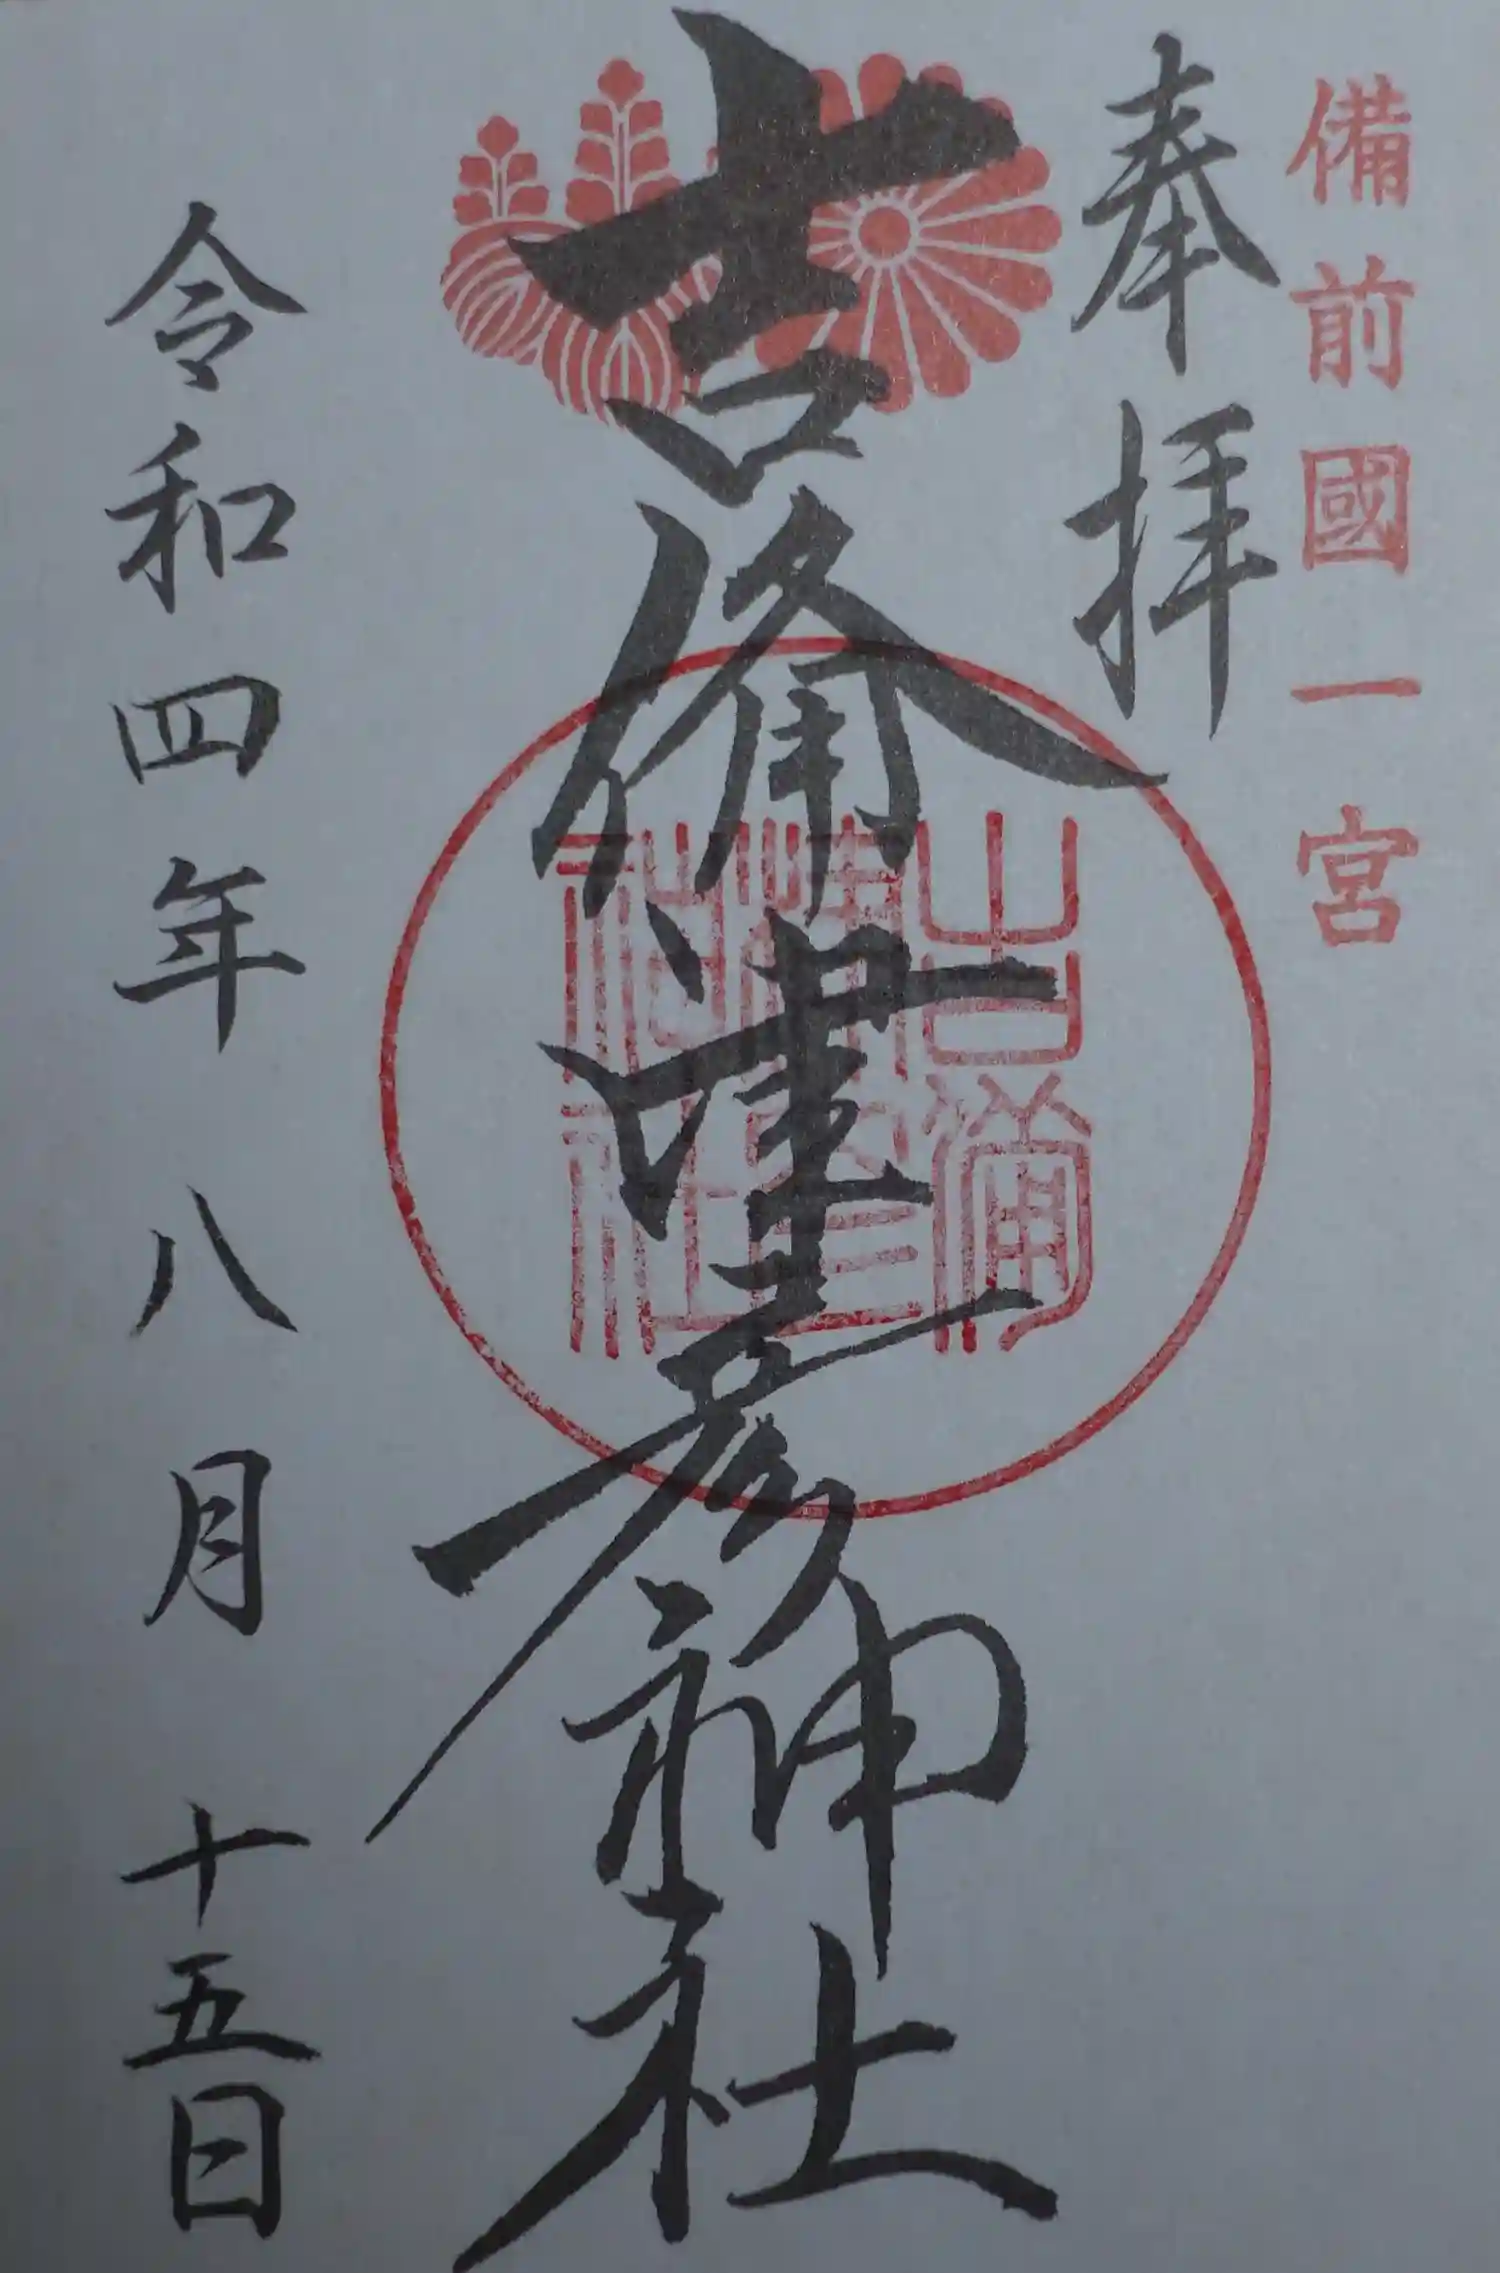 備前國一宮
奉拝
吉備津彦神社
吉備
津彦
神社
令和四年八月十五日